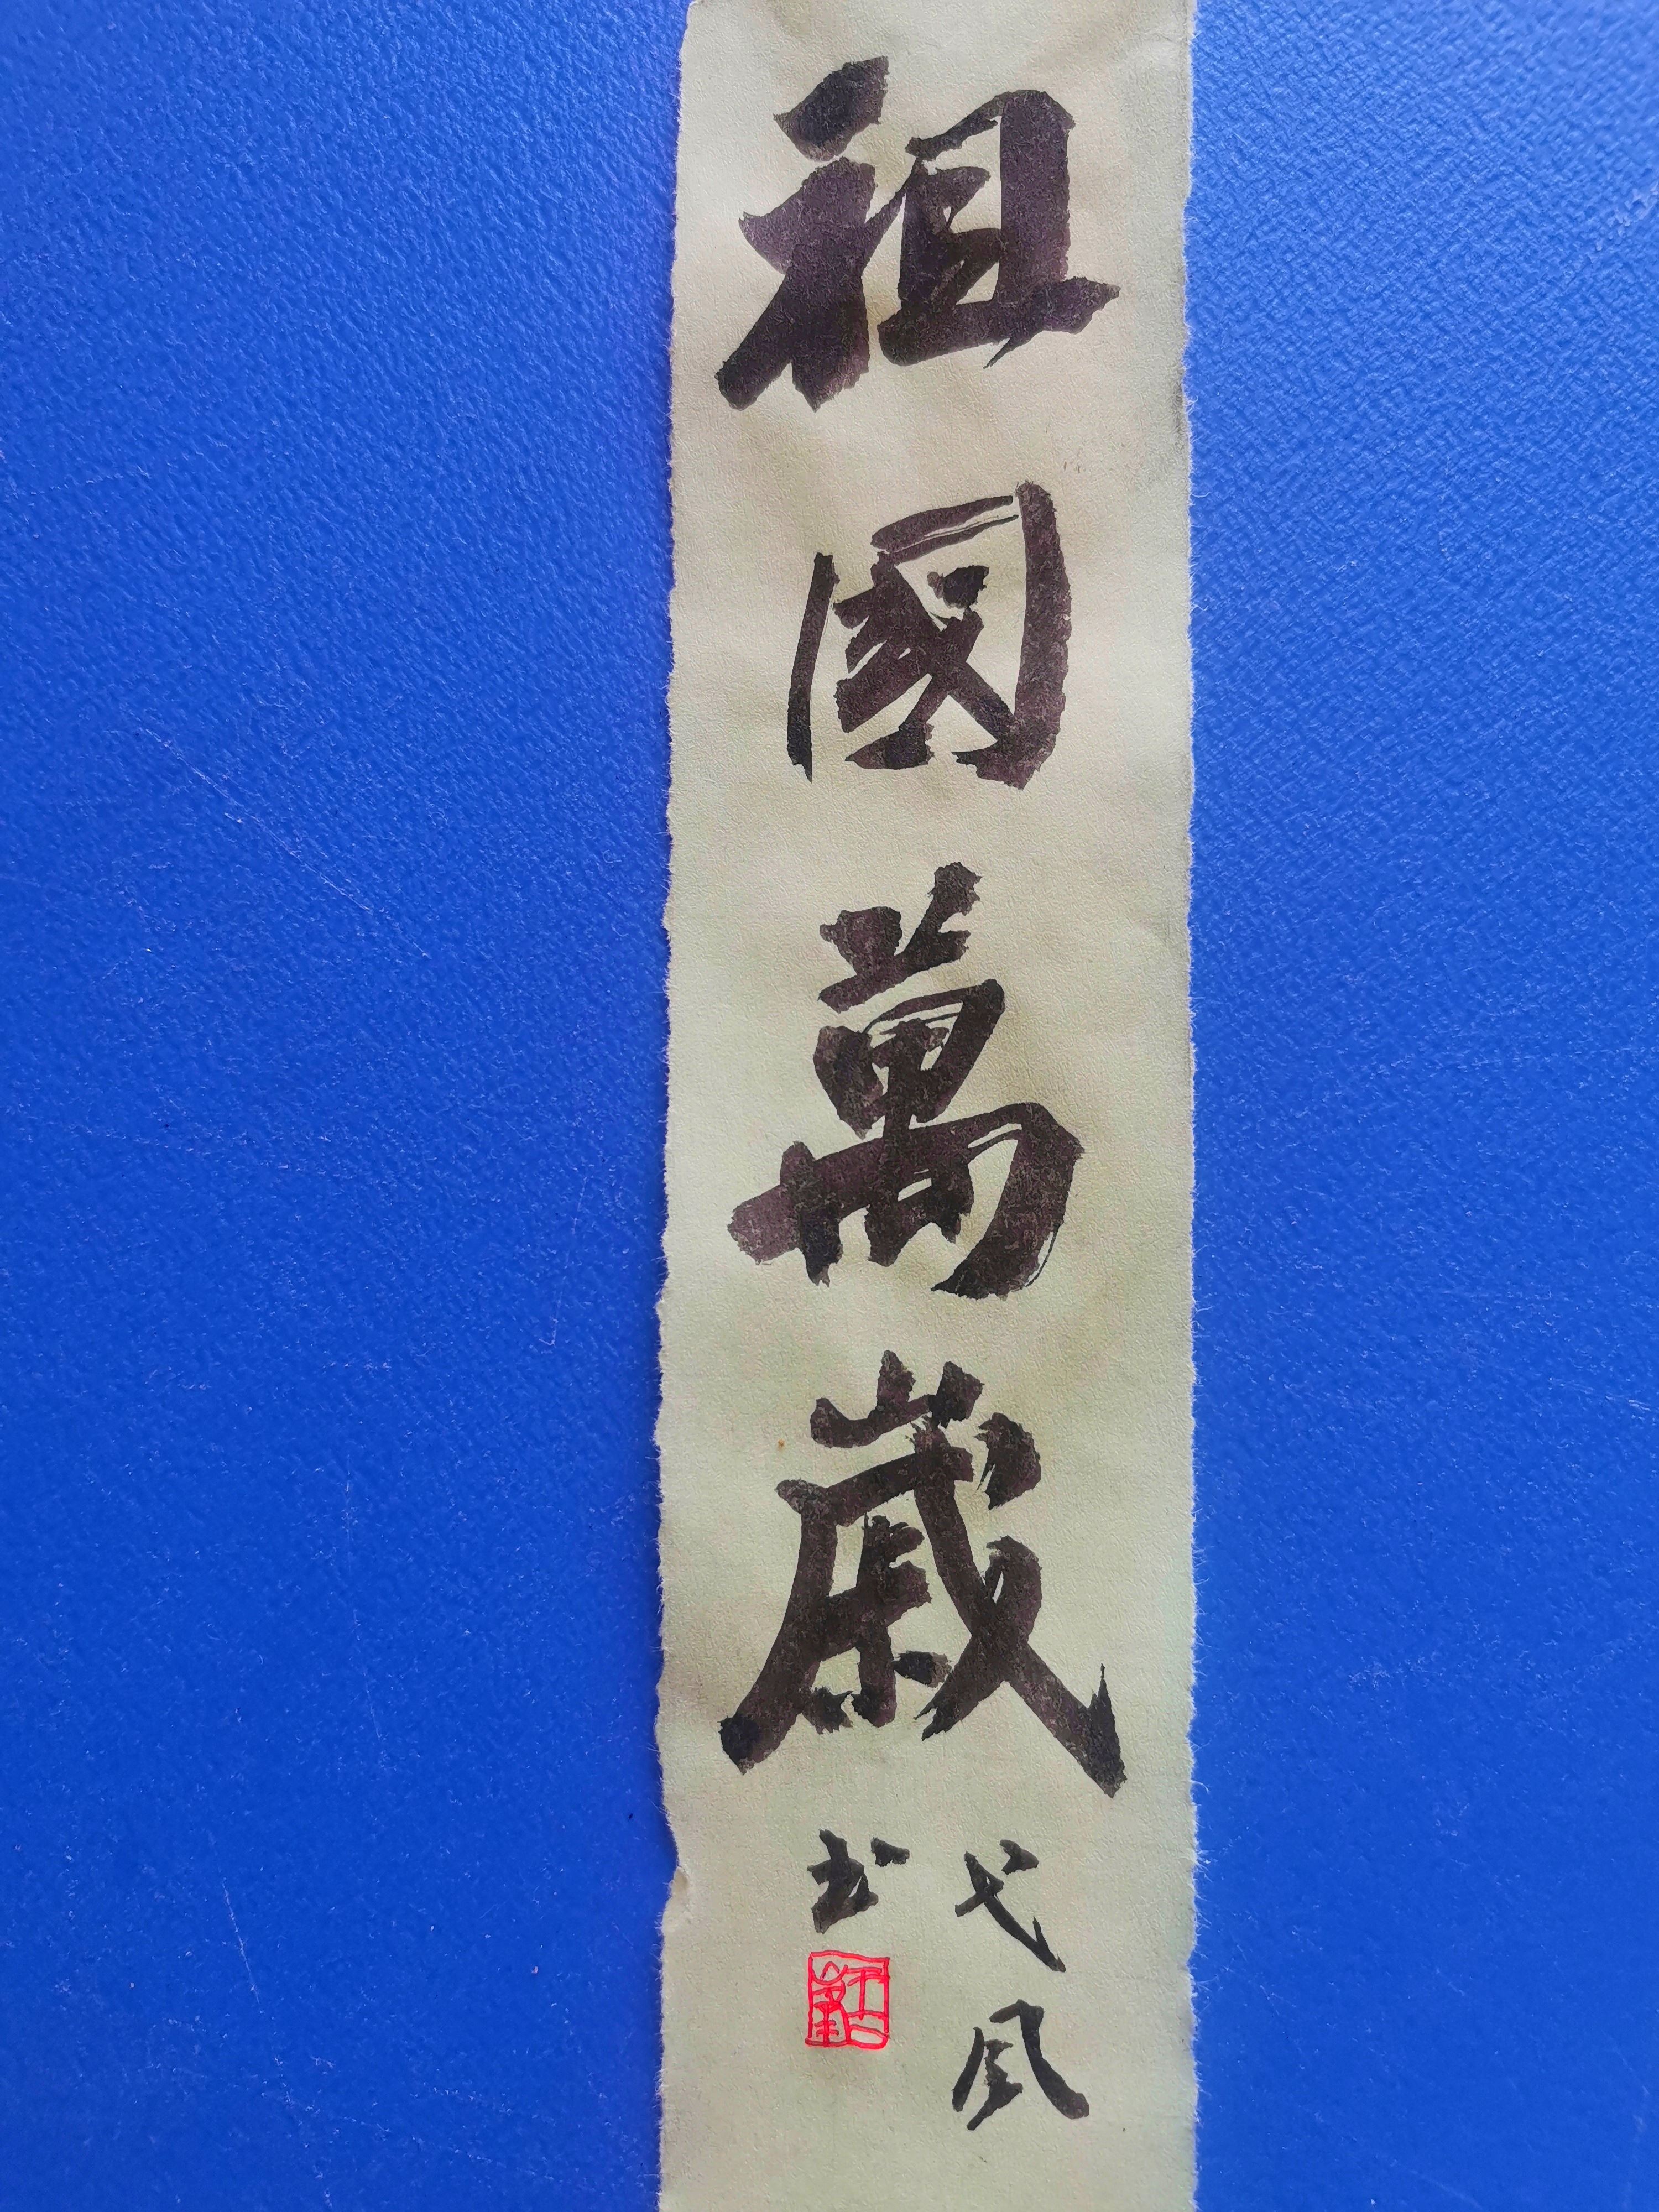 祖國萬歲
弋风
书